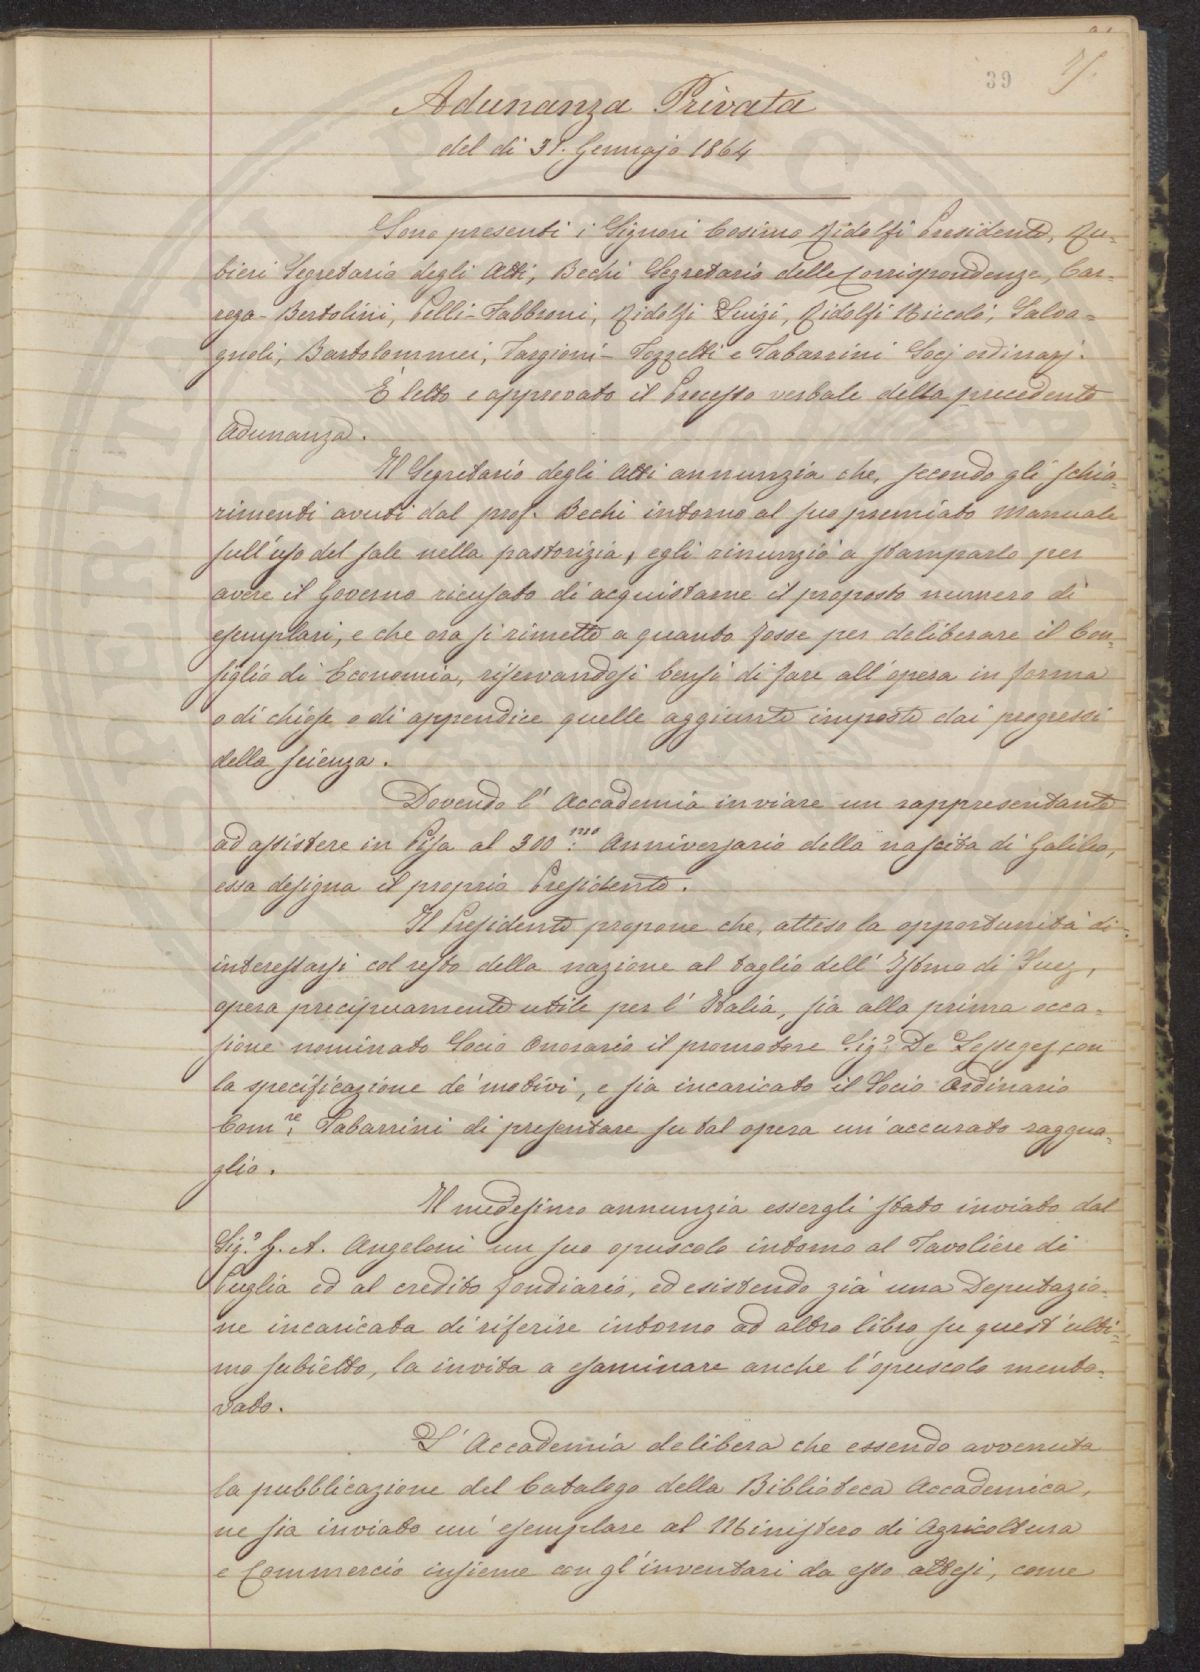 39
Adunanza Privata
del dì 31. Gennajo 1864
Sono presenti i Signori Cosimo Ridolfi Presidente, Ru-
bieri Segretario degli Atti, Bechi Segretario delle Corrispondenze, Car-
rega-Bertolini, Pelli-Fabbroni, Ridolfi Luigi, Ridolfi Niccolò, Salva-
gnoli, Bartolommei, Targioni-Tozzetti e Tabarrini Socj ordinarj.
È letto e approvato il Processo verbale della precedente
Adunanza.
Il Segretario degli Atti annunzia che, secondo gli schia-
rimenti avuti dal prof. Bechi intorno al suo premiato Manuale
sull'uso del sale nella pastorizia, egli rinunziò a stamparlo per
avere il Governo ricusato di acquistarne il proposto numero di
esemplari, e che ora si rimette a quanto fosse per deliberare il Con-
siglio di Economia, riservandosi bensì di fare all'opera in forma
o di chiose o di appendice quelle aggiunte imposte dai progressi
della scienza.
Dovendo l'Accademia inviare un rappresentante
ad assistere in Pisa al 300.mo Anniversario della nascita di Galileo,
essa designa il proprio Presidente.
Il Presidente propone che, atteso la opportunità di
interessarsi col resto della nazione al taglio dell'Istmo di Suez,
opera precipuamente utile per l'Italia, sia alla prima occa-
sione nominato Socio Onorario il promotore Sig.r De Lesseges, con
la specificazione de' motivi, e sia incaricato il Socio Ordinario
Com.re Tabarrini di presentare su tal opera un'accurato raggua-
glio.
Il medesimo annunzia essergli stato inviato dal
Sig.r G. A. Angeloni un suo opuscolo intorno al Tavoliere di
Puglia ed al credito fondiario, ed esistendo già una Deputazio-
ne incaricata di riferire intorno ad altro libro su quest'ulti-
mo subietto, la invita a esaminare anche l'opuscolo mento-
vato.
L'Accademia delibera che essendo avvenuta
la pubblicazione del Catalogo della Biblioteca Accademica,
ne sia inviato un'esemplare al Ministero di Agricoltura
e Commercio insieme con gl'inventari da esso attesi, come